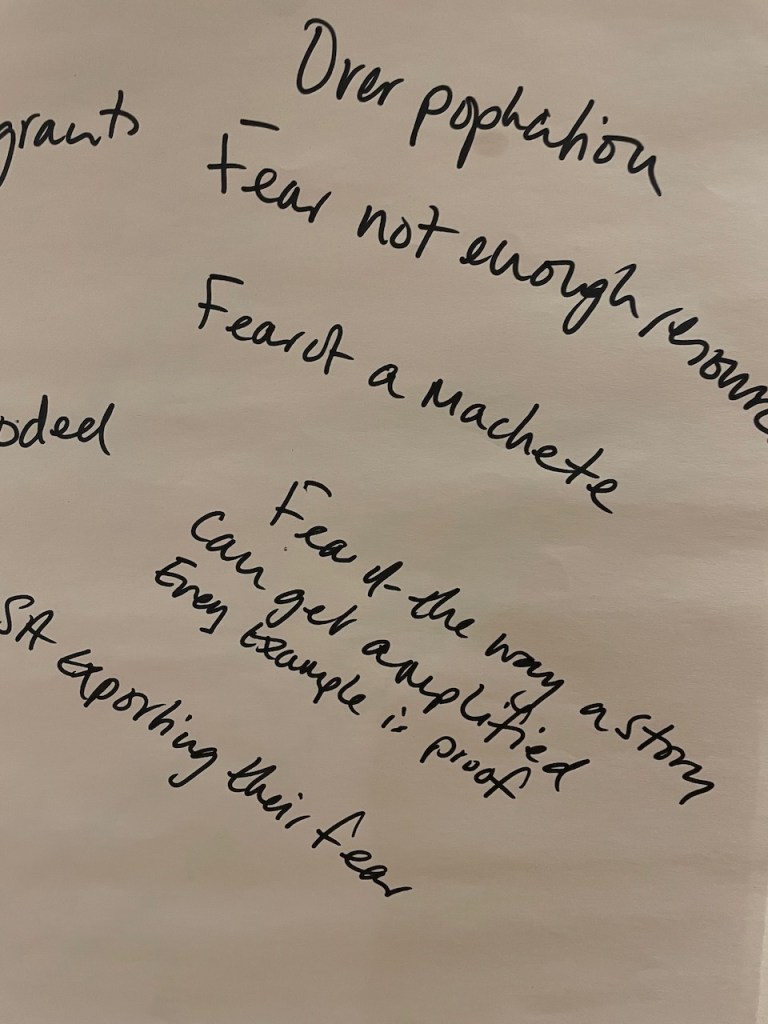 Over pophation
grants
Fear not enough resourc
Fear of a Machete
oded
Fear of the way a story
Can get amplified
Every Example is proof
SA Exporting their fear